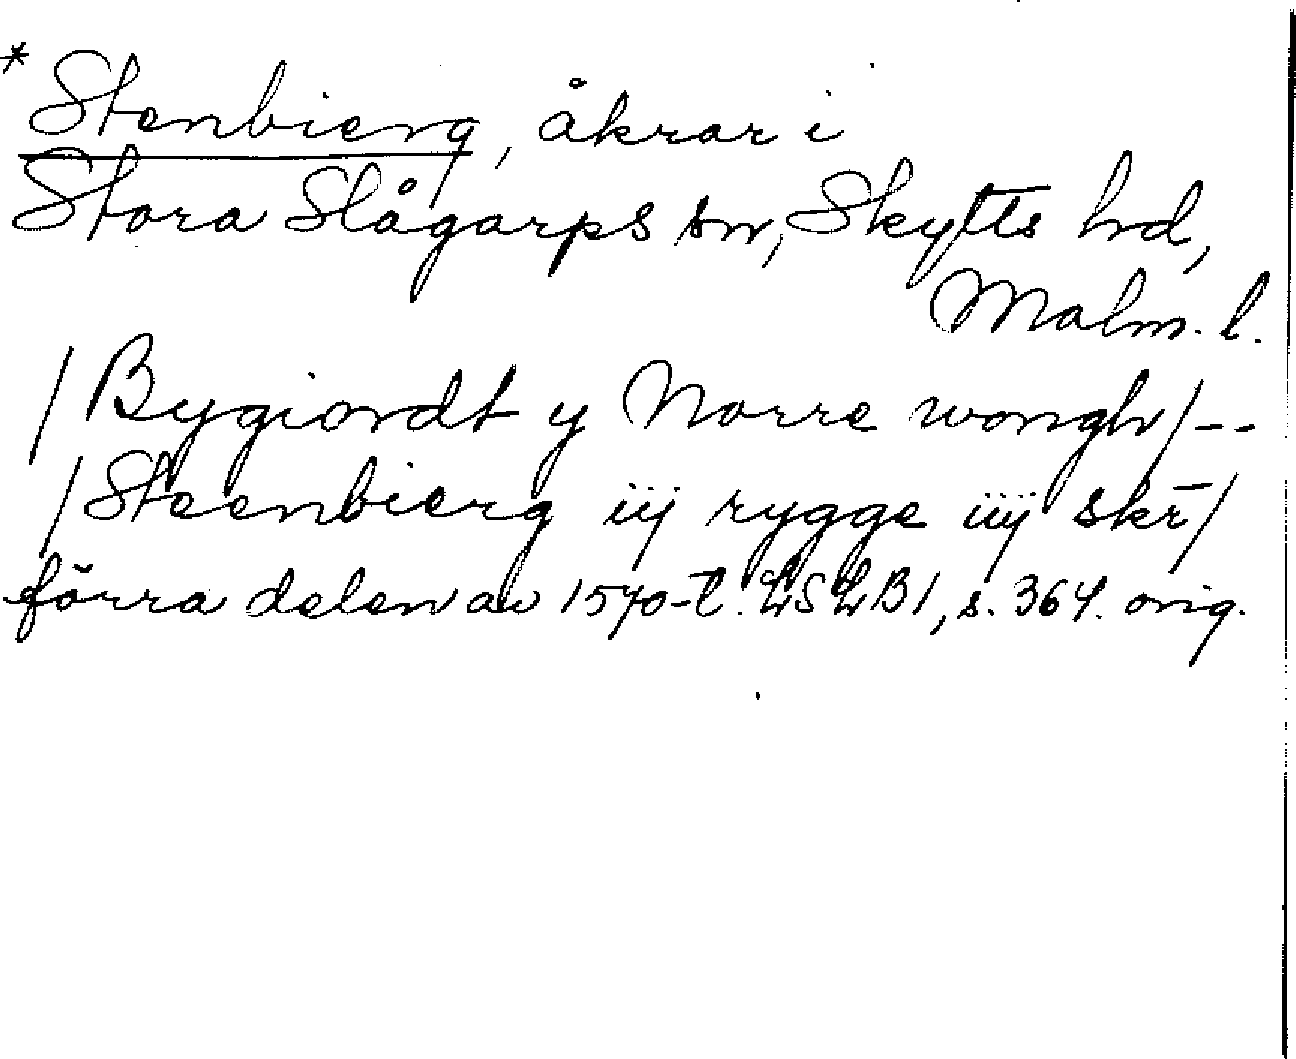 * Stenbierg, åkrar i
Stora Slågarps sn, Skytts hd,
Malm. l.
/Bygiordt y Norre wongh/--
/Steenbierg iij rygge iiij skr̄/
förra delen av 1570-t. LSLB1, s. 364. orig.